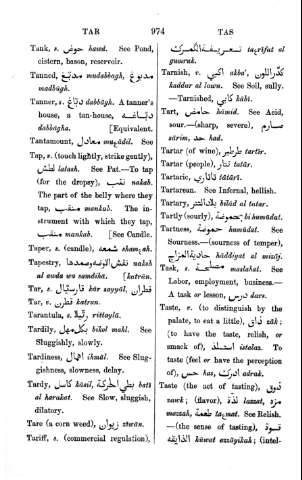 TAR 974 TAS
Tank, s. حوض hawd. See Pond,
cistern, bason, reservoir.
Tanned, مدبّغ mudabbagh, مدبوغ
madbūgh.
Tanner, s. دبّاغ dabbāgh. A tanner's
house, a tan-house, دبّاغه
dabbāgha. [Equivalent.
Tantamount, معادل muʿādil. See
Tap, s. (touch lightly, strike gently),
لطش latash. See Pat.—To tap
(for the dropsy), نقب nakab.
The part of the belly where they
tap, منقب mankab. The in-
strument with which they tap,
منقب mankab. [See Candle.
Taper, s. (candle), شمعه shamʿah.
Tapestry,
al awda wa samdiha. [katrān.
Tar, s. قطران kār sayyāl,
Tar, v. قطرن katran.
Tarantula, s. رتيلا rittaylā.
Tardily, بكل مهل bikol mahl. See
Sluggishly, slowly.
Tardiness, اهمال ihmāl. See Slug-
gishness, slowness, delay.
Tardy, كاسل kāsil, بطي الحركة batī
al harakat. See Slow, sluggish,
dilatory.
Tare (a corn weed), زيوان ziwān.
Tariff, s. (commercial regulation),
تعريفة الكمرك taʿrīfat al
gumruk.
Tarnish, v. اكبى akbaʾ, كدّر اللون
kaddar al lawn. See Soil, sully.
—Tarnished, كابي kābī.
Tart, حامض hāmid. See Acid,
sour.—(sharp, severe), صارم
sārim, حد had.
Tartar (of wine), طرطير tartīr.
Tartar (people), تتار tatār.
Tartaric, تاتاري tātārī.
Tartarean. See Infernal, hellish.
Tartary, بلاد التتار bilād al tatar.
Tartly (sourly), بحموضة bi humūdat.
Tartness, حموضة humūdat. See
Sourness.—(sourness of temper),
حادية المزاج hāddiyat al mizāj.
Task, s. مصلحة maslahat. See
Labor, employment, business.—
A task or lesson, درس dars.
Taste, v. (to distinguish by the
palate, to eat a little), ذاق zāk;
(to have the taste, relish, or
smack of), استلذ istalaz. To
taste (feel or have the perception
of), حس has, ادرك adrak.
Taste (the act of tasting), ذوق
zawk; (flavor), لذة lazzat, مزه
mazzah, طعمة taʿmat. See Relish.
—(the sense of tasting), قوة
الذايقه kūwat azzāyikah; (intel-